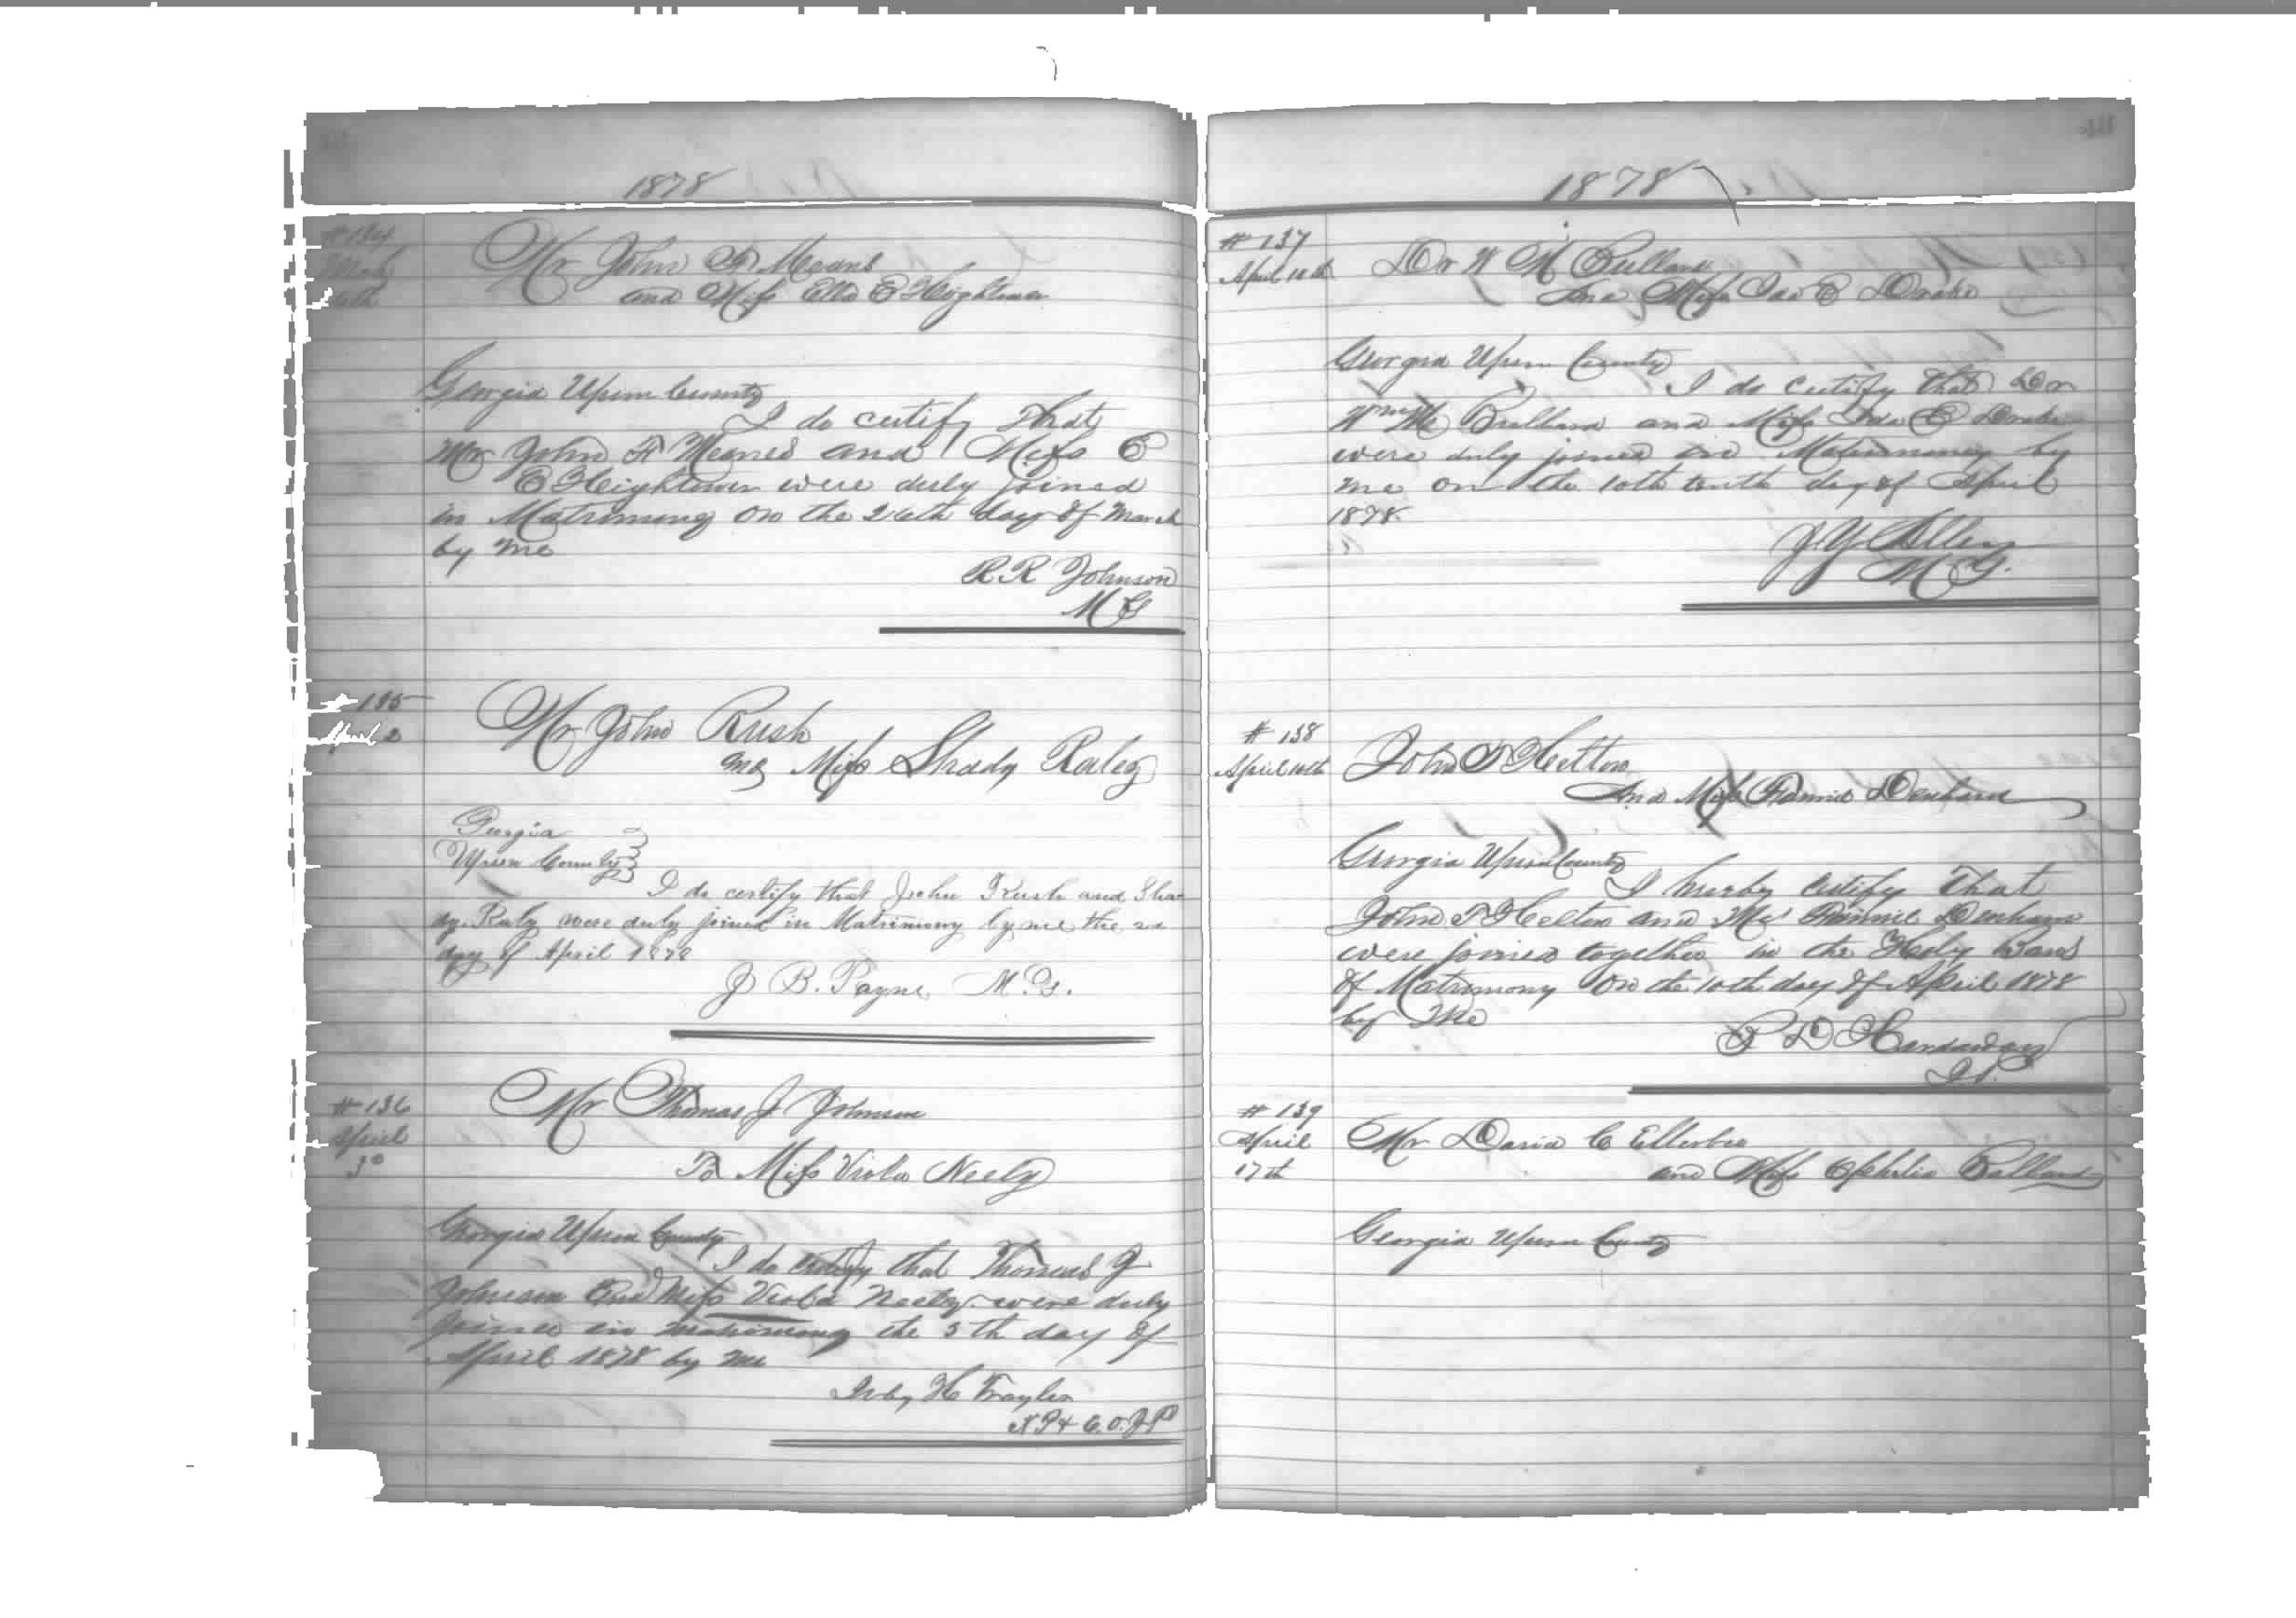 1878
# 134
Mr John F Means
and Miss Ella E Hightower
Georgia Upson County
I do certify that
Mr John F Means and Miss E
E Hightower were duly joined
in Matrimony on the 26th day of March
by me
R R Johnson
M G
135
April 2
Mr John Rush
Miss Shady Raley
Georgia
Upson County
I do certify that John Rush and Sha-
dy Raley were duly joined in Matrimony by me the 2d
day of April 1878
J B. Payne M. G.
# 136
April
3d
Mr Thomas J Johnson
To Miss Viola Neely
Georgia Upson County
I do certify that Thomas J
Johnson and Miss Viola Neely were duly
joined in matrimony the 5th day of
April 1878 by me
Irby H Traylor
N P & E. O. J P
1878
# 137
April 10th
Dr W M Bullard
and Miss Ida E Drake
Georgia Upson County
I do certify that Dr
Wm M Bullard and Miss Ida E Drake
were duly joined in Matrimony by
me on the 10th tenth day of April
1878
J. Y. Allen
M G.
# 138
April 10th
John T Helton
And Miss Fannie Denham
Georgia Upson County
I hereby certify that
John T Helton and Ms Fannie Denham
were joined together in the Holy Band
of Matrimony on the 10th day of April 1878
by Me
R D Hardaway
# 139
April
17th
Mr David C Ellerbee
and Miss Ophelia Ballard
Georgia Upson County